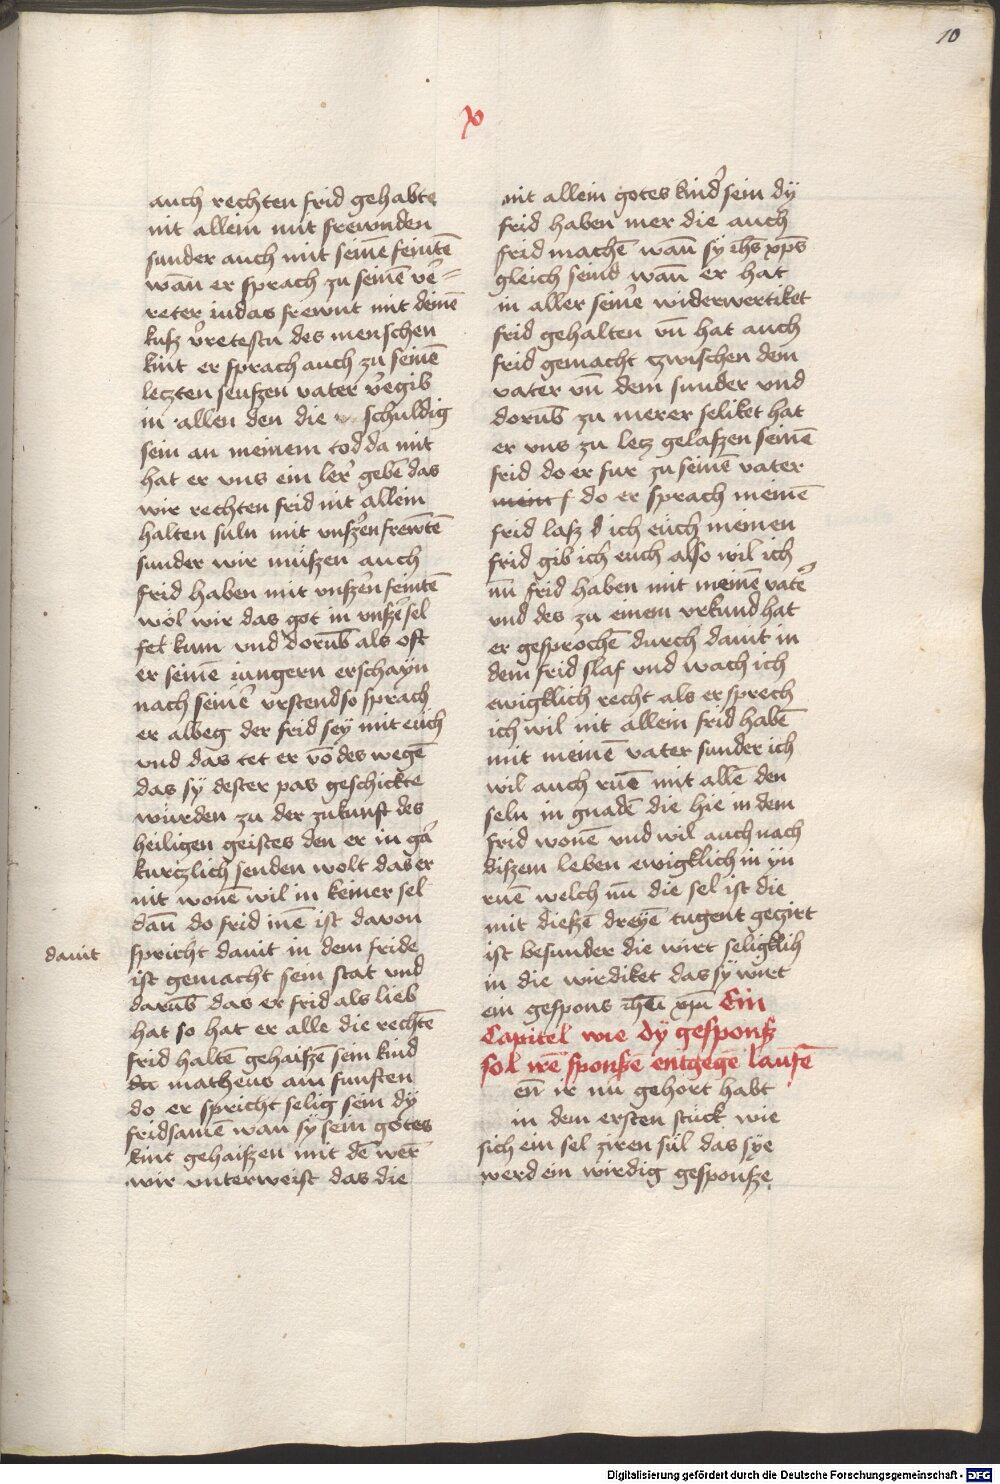 10
x
auch rechten frid gehabte
nit allein mit frewnden
sunder auch mit seinē feintē
wan̄ er sprach zu seinē ver=
reter iudas frewnt mit deinē
kusz vretestu des menschen
kint er sprach auch zu seinē
leczten seufzen vater vergib
in allen den die schuldig
sein an meinem tod da mit
hat er vns ein ler gebē das
wir rechten frid nit allein
halten suln mit vnszen frewtē
sunder wir müszen auch
frid haben mit vnszen feintē
wöl wir das got in vnsze sel
sel kum vnd dorūb als oft
er seinē iungern erschayn
nach seiner vrstend so sprach
er albeg der frid sey mit eüch
vnd das tet er vō des wegē
das sÿ dester pas geschickte
würden zu der zukunft des
heiligen geistes den er in gar
kurczlich senden wolt das er
nit wonē wil in keiner sel
dan̄ do frid inē ist davon
damit
spricht dauit in dem fride
ist gemacht sein stat vnd
darūb das er frid als lieb
hat so hat er alle die rechtē
frid haltē gehaiszē sein kind
da matheus am funften
do er spricht selig sein dÿ
fridsamē wan sÿ sein gotes
kint gehaiszen mit dē wer
wir vnterweist das die
nit allein gotes kinder sein dÿ
frid haben mer die auch
frid machē wan̄ sÿ ihs xp̄s
gleich seind wan̄ er hat
in aller seiner widerwertiket
frid gehalten vn̄ hat auch
frid gemacht zwischen dem
vater vn̄ dem sunder vnd
dorūb zu merer seliket hat
er vns zu lecz gelaszen seinē
frid do er fur zu seinē vater
mein f do er sprach meinē
frid lasz d ich eüch meinen
frid gib ich euch also wil ich
nū frid haben mit meinē vater
vnd des zu einem vrkund hat
er gesprochē durch dauit in
dem frid slaf vnd wach ich
ewigklich recht als er sprech
ich wil nit allein frid habē
mit meinē vater sunder ich
wil auch ruē mit allē den
seln in gnadē die hie in dem
frid wonē vnd wil auch nach
diszem leben ewigklich in yn
ruē welch nū die sel ist die
mit dieszē dreyē tugent gezirt
ist besunder die wirt seligklih
in die wirdiket das sÿ wirt
ein gespons ih̄u xp̄i Ein
Capitel wie dÿ gesponsz
sol irē sponszē entgegē laufē
en̄ ir nu gehort habt
in dem ersten stück wie
sich ein sel ziren sül das sÿe
werd ein wirdig gesponsze
Digitalisierung gefördert durch die Deutsche Forschungsgemeinschaft - DFG